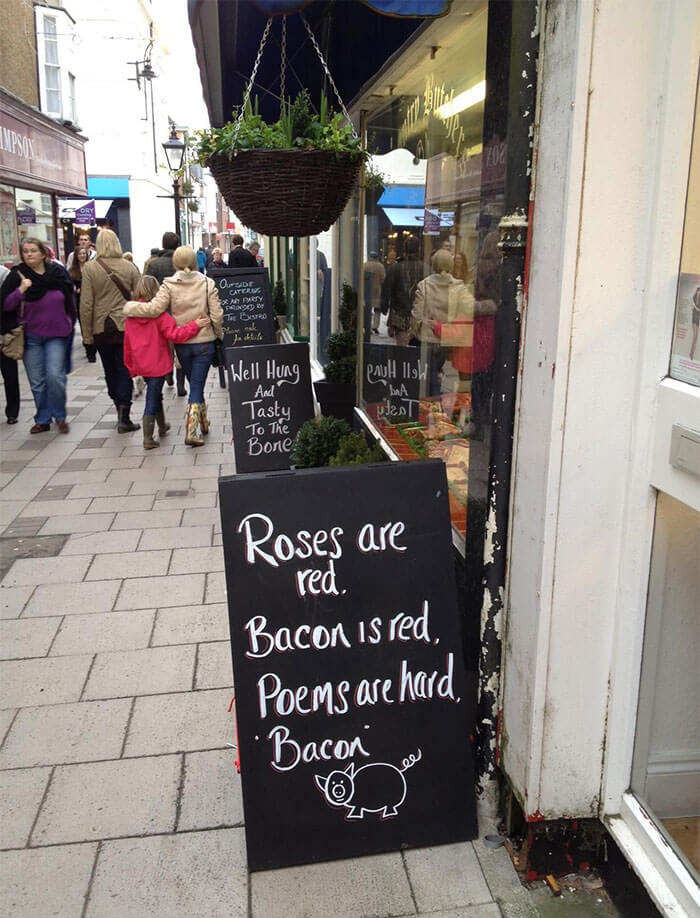 IMPSON
ORY
OUTSIDE
CATERING
FOR ANY PARTY
PROVIDED BY
THE BISTRO
Please ask
for details
Well Hung
And
Tasty
To The
Bone
Roses are
red.
Bacon is red.
Poems are hard.
"Bacon"